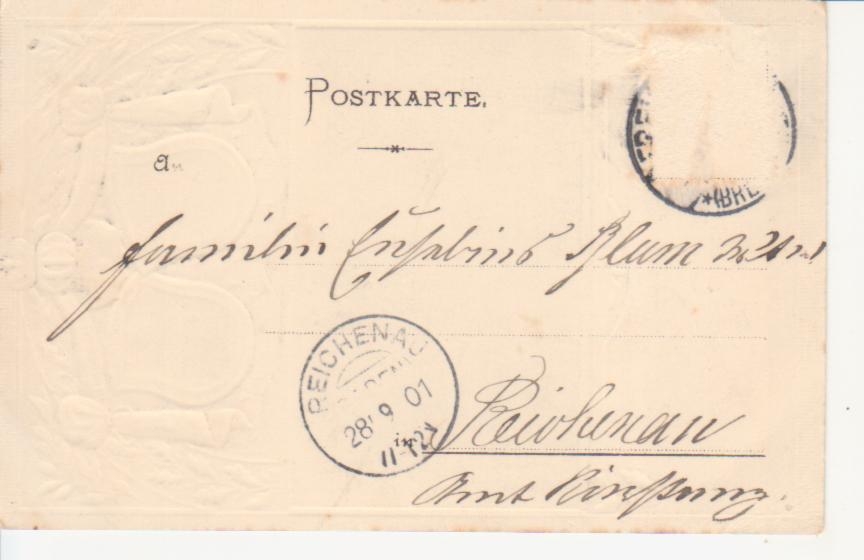 POSTKARTE.
An
Familie Eusebius Blum
REICHENAU
28 9 01
11-12V
in Reichenau
Amt
*(BRE